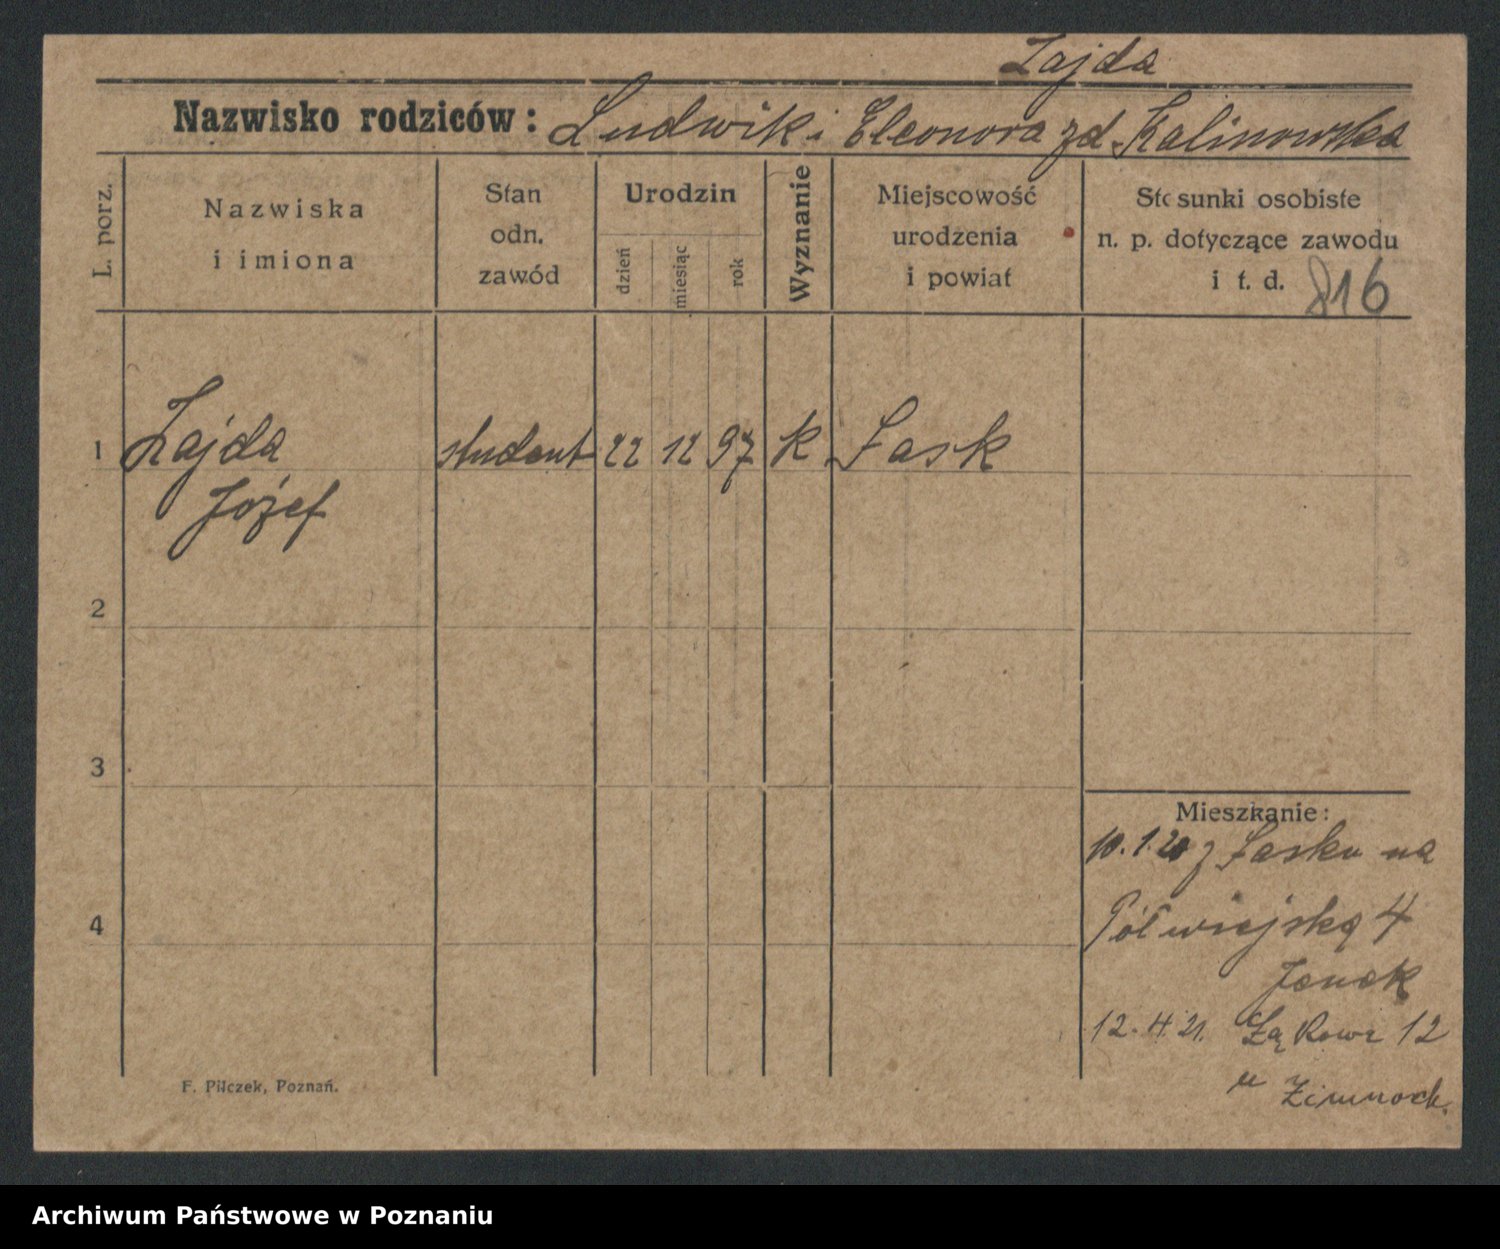 Zajda
Nazwisko rodziców: Ludwik i Eleonora zd. Kalinowska
L. porz.
Nazwiska
i imiona
Stan
odn.
zawód
Urodzin
dzień
miesiąc
rok
Wyznanie
Miejscowość
urodzenia
i powiat
Stosunki osobiste
n. p. dotyczące zawodu
i t. d. 816
1 Zajda student 22 12 97 k Łask
Józef
2
3
Mieszkanie:
10.1.20 z Łasku na
4
Półwiejską 4
12. 4. 21. Łąkowa 12
u
F. Pilczek, Poznań.
Archiwum Państwowe w Poznaniu